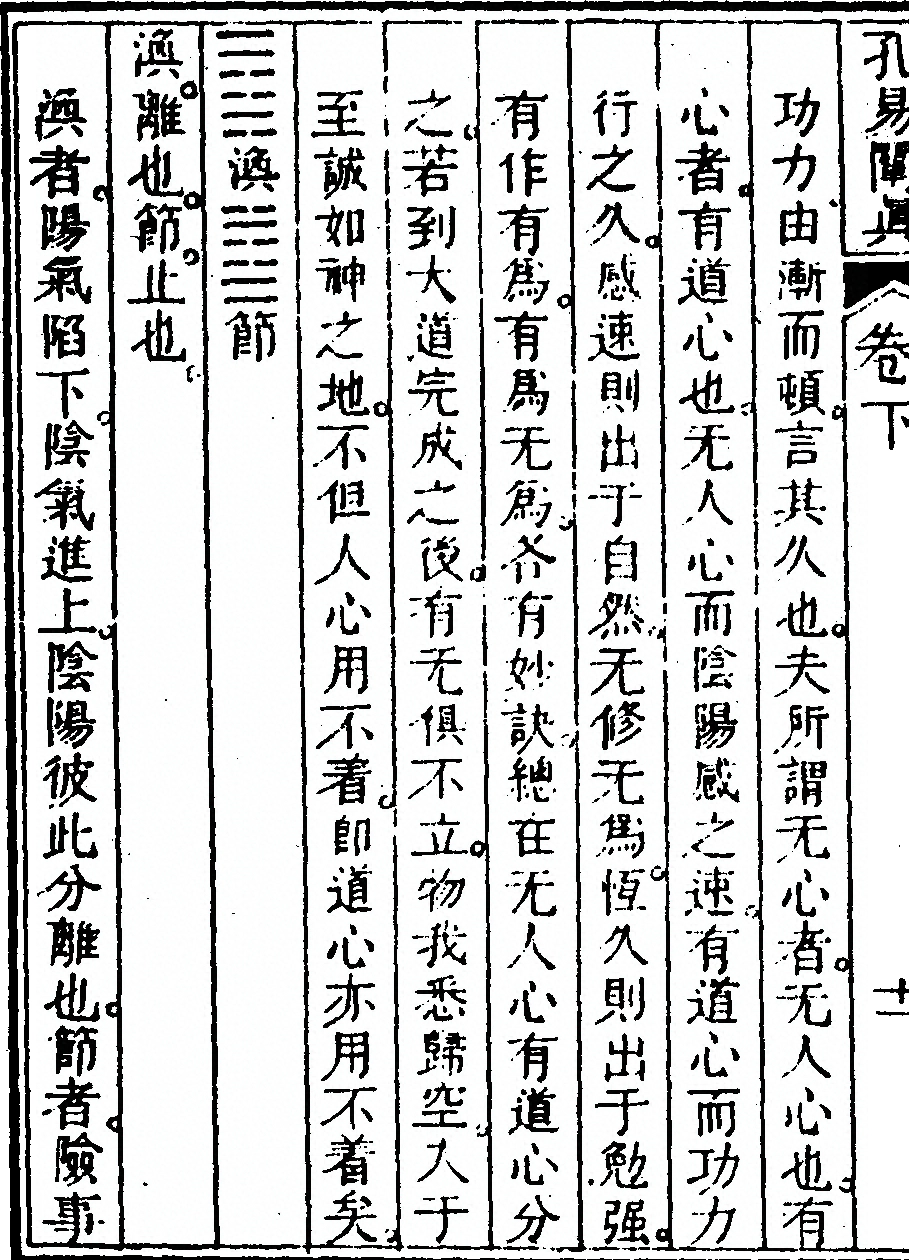 孔易闡眞 卷下 十一
功力由漸而頓言其久也夫所謂无心者无人心也有
心者有道心也无人心而陰陽感之速有道心而功力
行之久感速則出于自然无修无爲恆久則出于勉强
有作有爲有爲无爲各有妙訣總在无人心有道心分
之若到大道完成之後有无俱不立物我悉歸空入于
至誠如神之地不但人心用不着卽道心亦用不着矣
䷺渙䷻節
渙離也節止也
渙者陽氣陷下陰氣進上陰陽彼此分離也節者險事